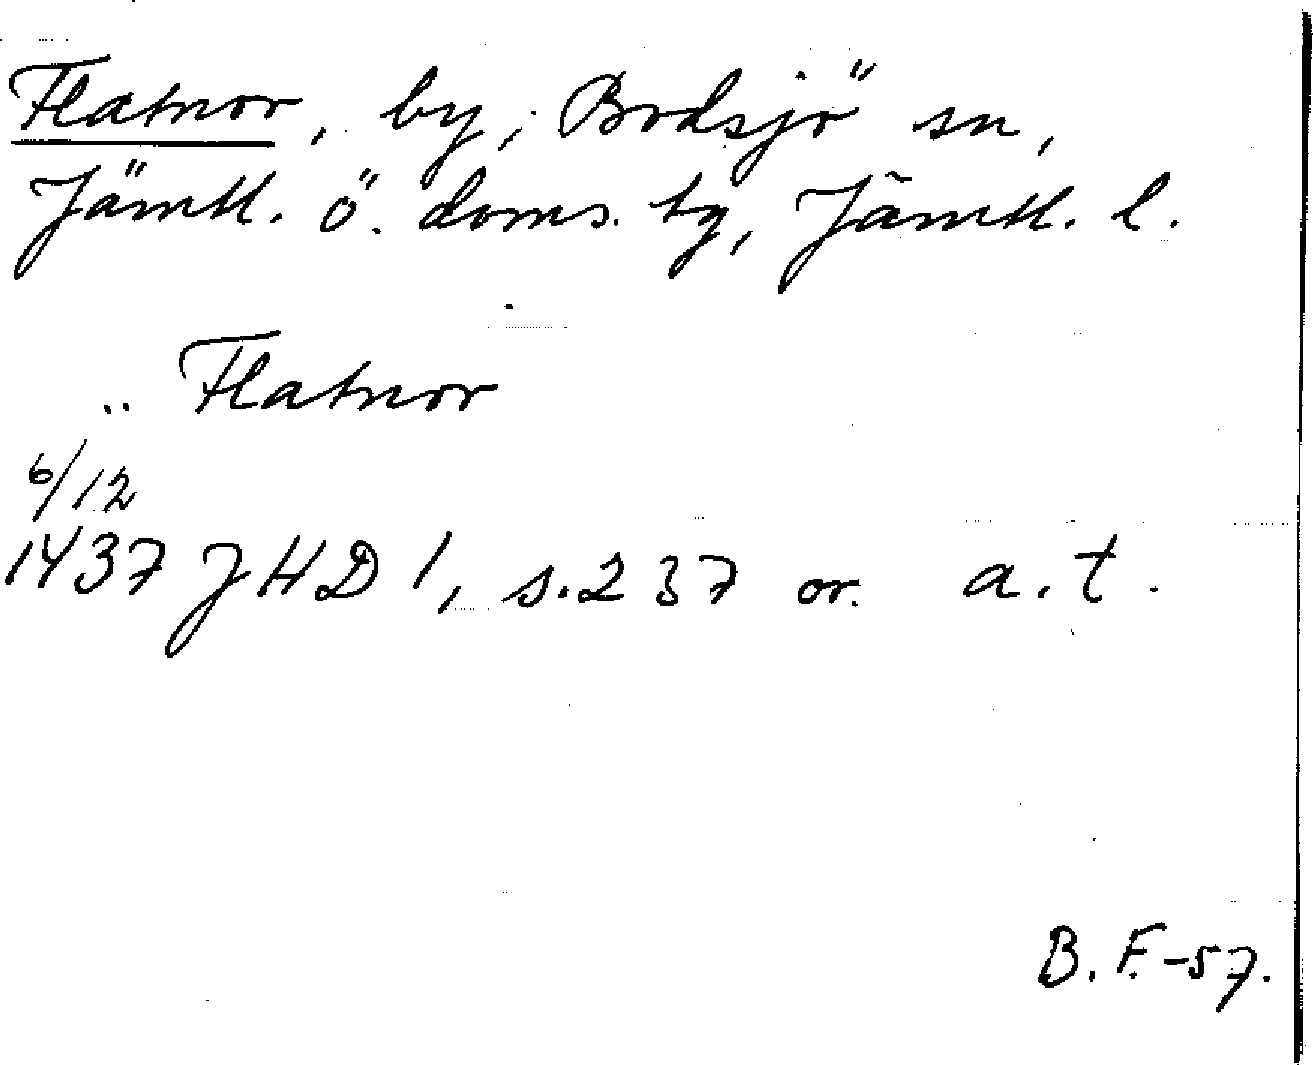 Flatnor, by, Bodsjö sn,
Jämtl. ö. doms. tg, Jämtl. l.
.. Flatnor
6/12
1437 JHD 1, s. 237 or. a. t.
B. F. -57.